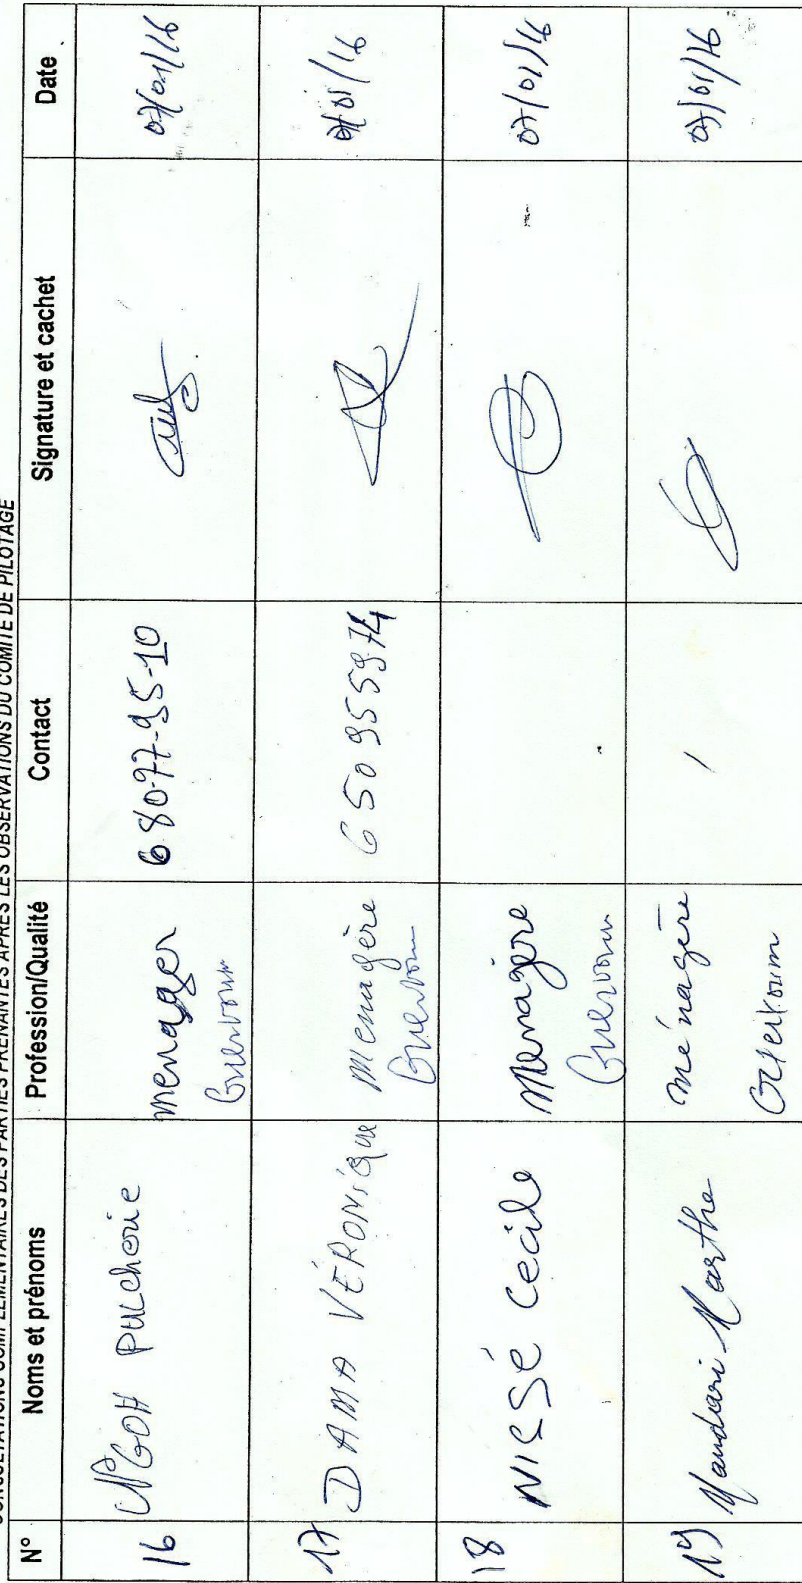 CONSULTATIONS COMPLEMENTAIRES DES PARTIES PRENANTES APRES LES OBSERVATIONS DU COMITE DE PILOTAGE
N° Noms et prénoms Profession/Qualité Contact Signature et cachet Date
16 NGOH PULcherie menager 680-77-95-10 07/01/16
17 DAMA VÉRONIQUE menagère 650955974 07/01/16
18 Cecile Menagère 07/01/16
19 Marthe ménagère / 07/01/16